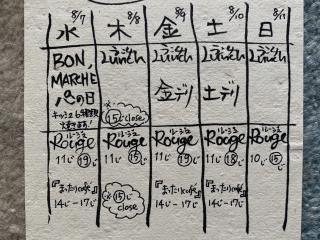 8/7 8/8 8/9 8/10 8/11
水 木 金 土 日
BON,
MARCHE
の日
Lunch
※
15じ
close
Lunch
金デリ
Lunch
土デリ
Lunch
ルージュ
Rouge
11じ 19じ
『まったりcafe』
14じ-17じ
ルージュ
Rouge
11じ 15じ
※
15じ
close
ルージュ
Rouge
11じ 19じ
『まったりcafe』
14じ-17じ
ルージュ
Rouge
11じ 18じ
『まったりcafe』
14じ-17じ
ルージュ
Rouge
10じ 15じ